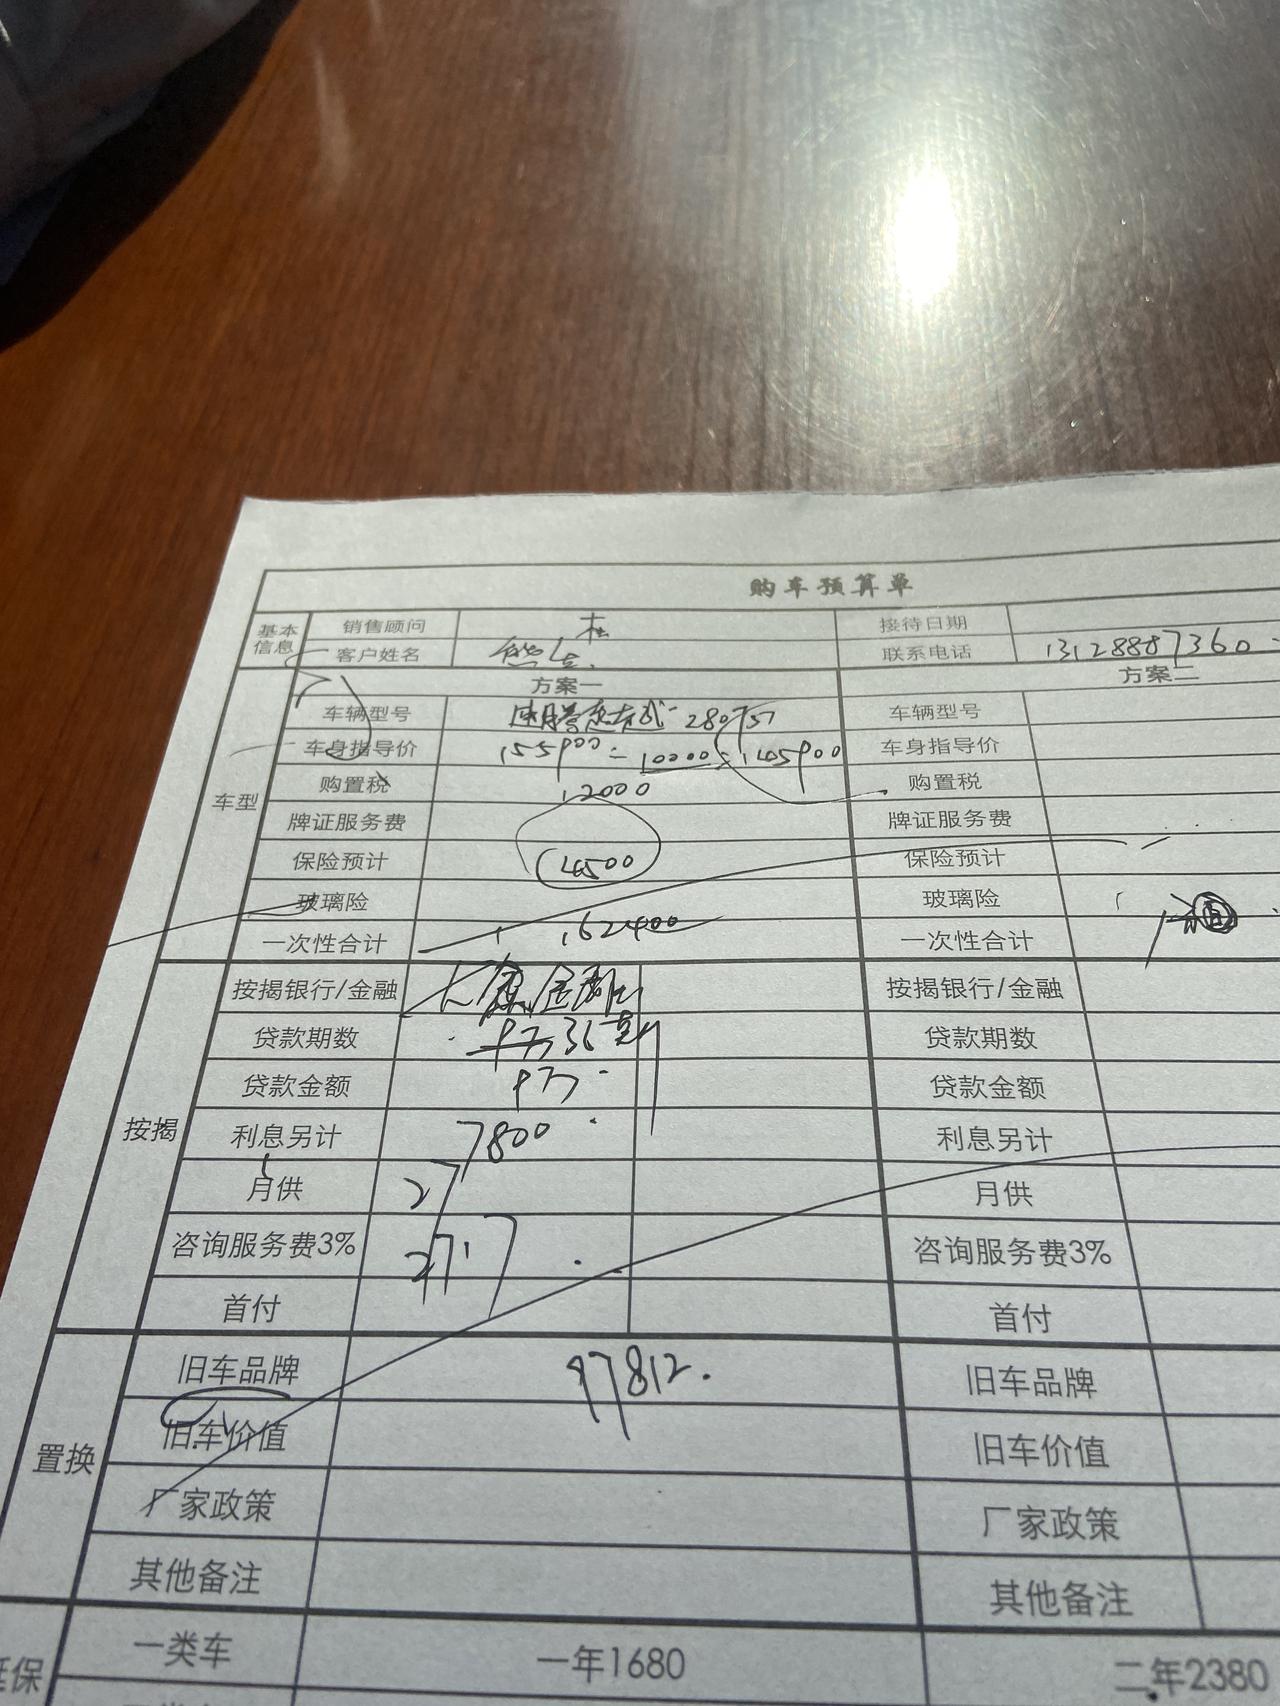 购车预算单
基本信息 销售顾问 杜 接待日期
客户姓名 熊生 联系电话 13128887360
方案一 方案二
车型 车辆型号 280TSI 车辆型号
车身指导价 155900-10000=145900 车身指导价
购置税 12000 购置税
牌证服务费 牌证服务费
保险预计 4500 保险预计
玻璃险 玻璃险
一次性合计 162400 一次性合计
按揭 按揭银行/金融 按揭银行/金融
贷款期数 36期 贷款期数
贷款金额 贷款金额
利息另计 7800 利息另计
月供 月供
咨询服务费3% 2717 咨询服务费3%
首付 首付
置换 旧车品牌 97812. 旧车品牌
旧车价值 旧车价值
厂家政策 厂家政策
其他备注 其他备注
延保 一类车 一年1680 二年2380